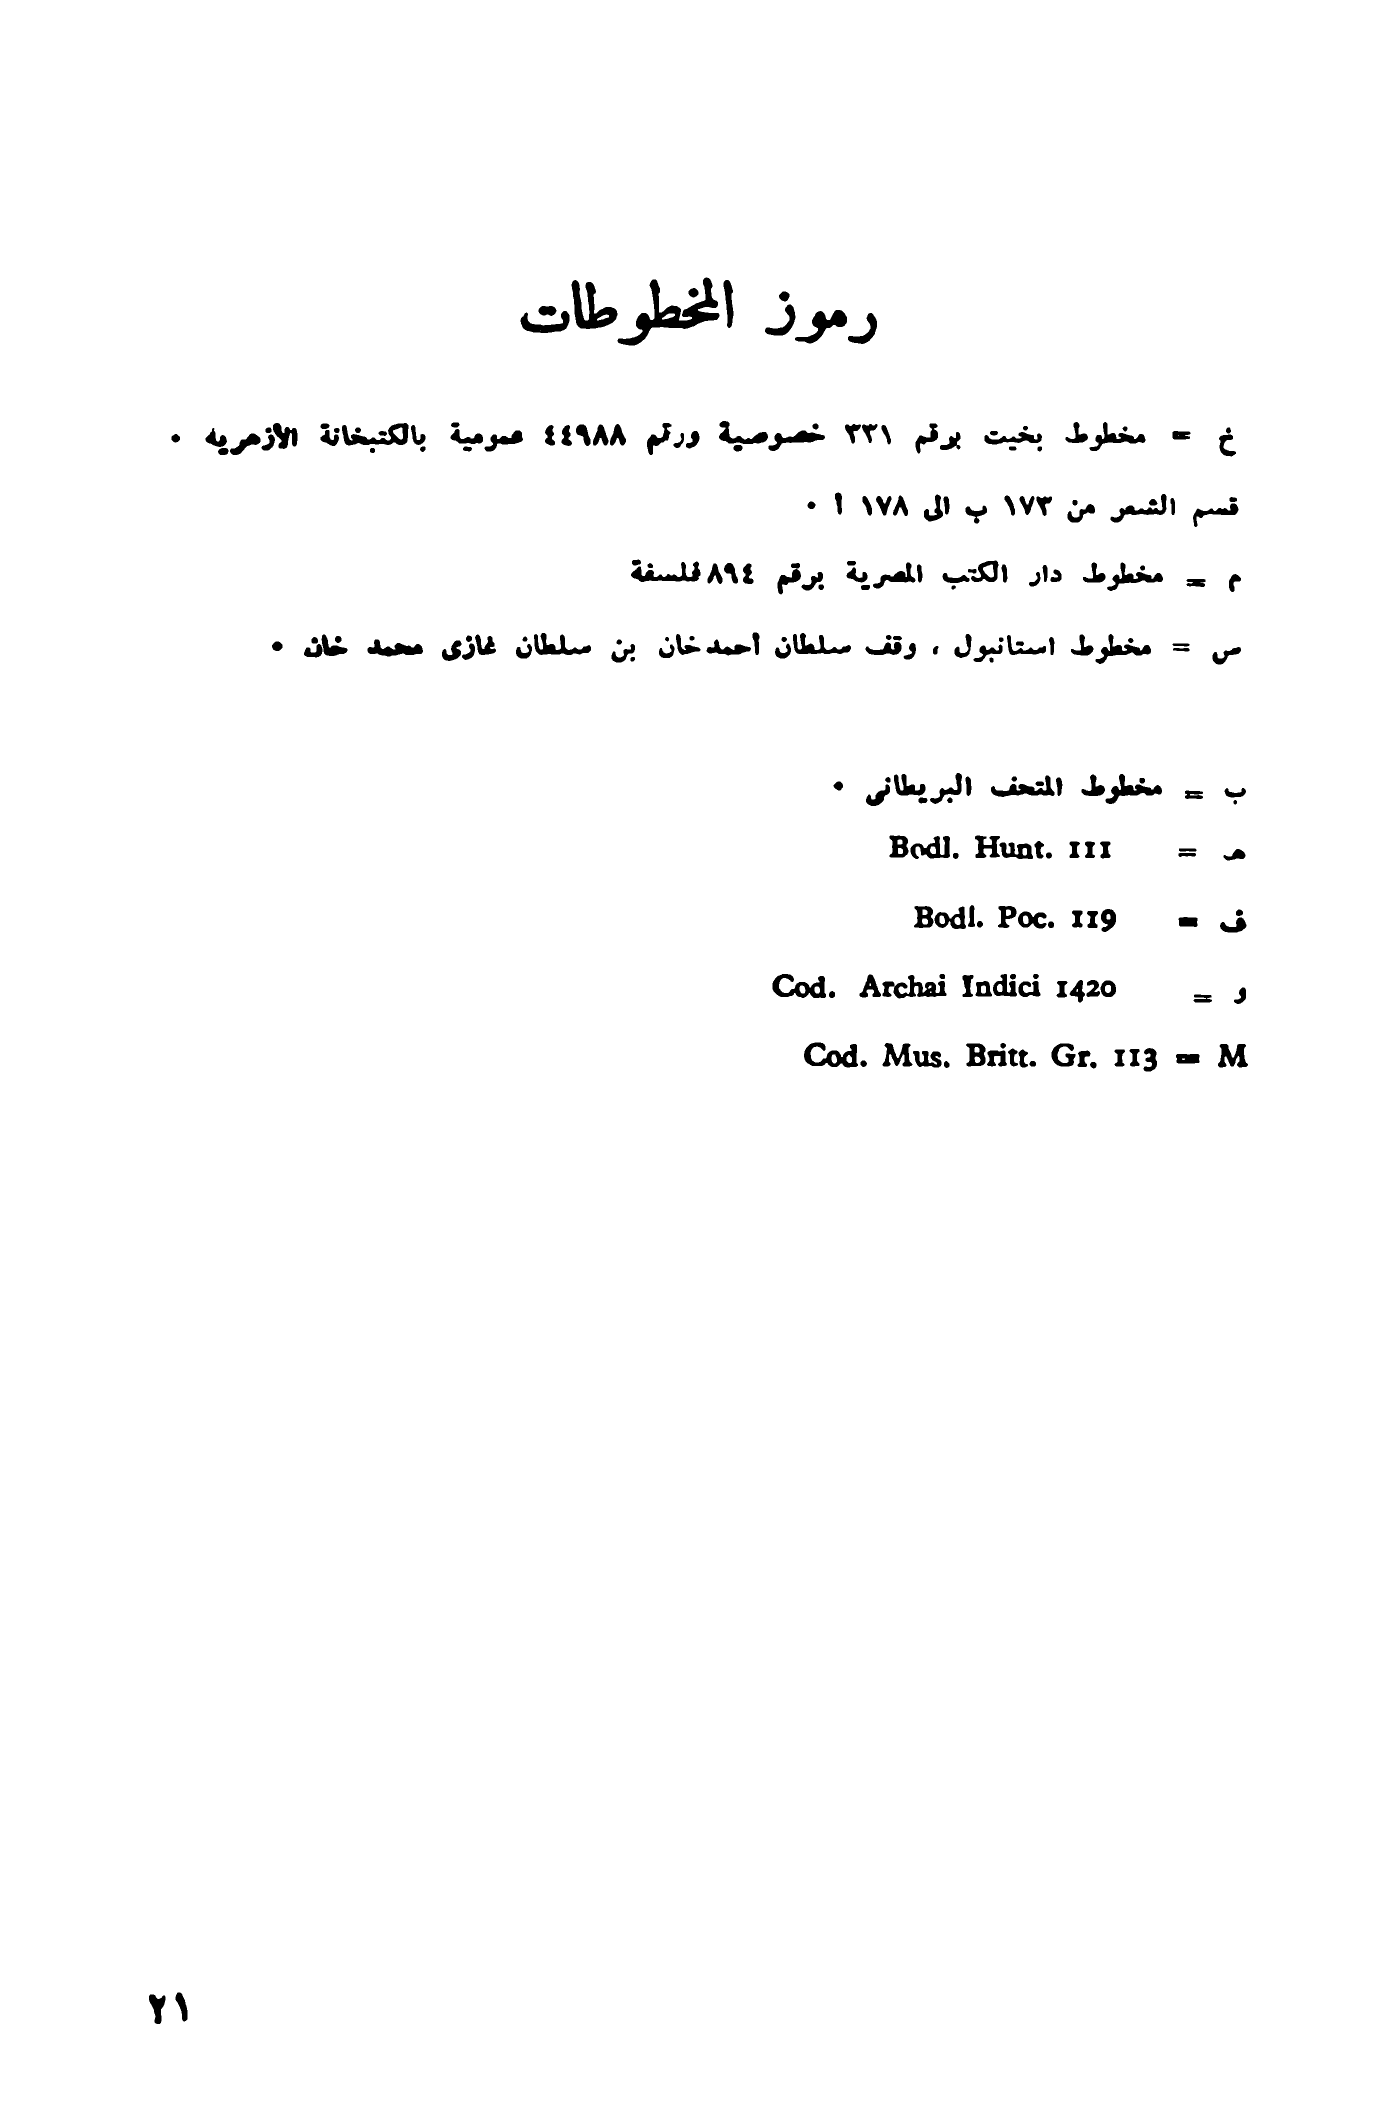 رموز المخطوطات
خ = مخطوط بخيت برقم ٣٣١ خصوصية ورقم ٤٤٩٨٨ عمومية بالكتبخانة الأزهرية .
قسم الشعر من ١٧٣ ب الى ١٧٨ أ .
م = مخطوط دار الكتب المصرية برقم ٨٩٤ فلسفة
ص = مخطوط استانبول ، وقف سلطان أحمد خان بن سلطان غازى محمد خان .
ب = مخطوط المتحف البريطانى .
هـ = Bodl. Hunt. 111
ف = Bodl. Poc. 119
و = Cod. Archai Indici 1420
Cod. Mus. Britt. Gr. 113 = M
٢١